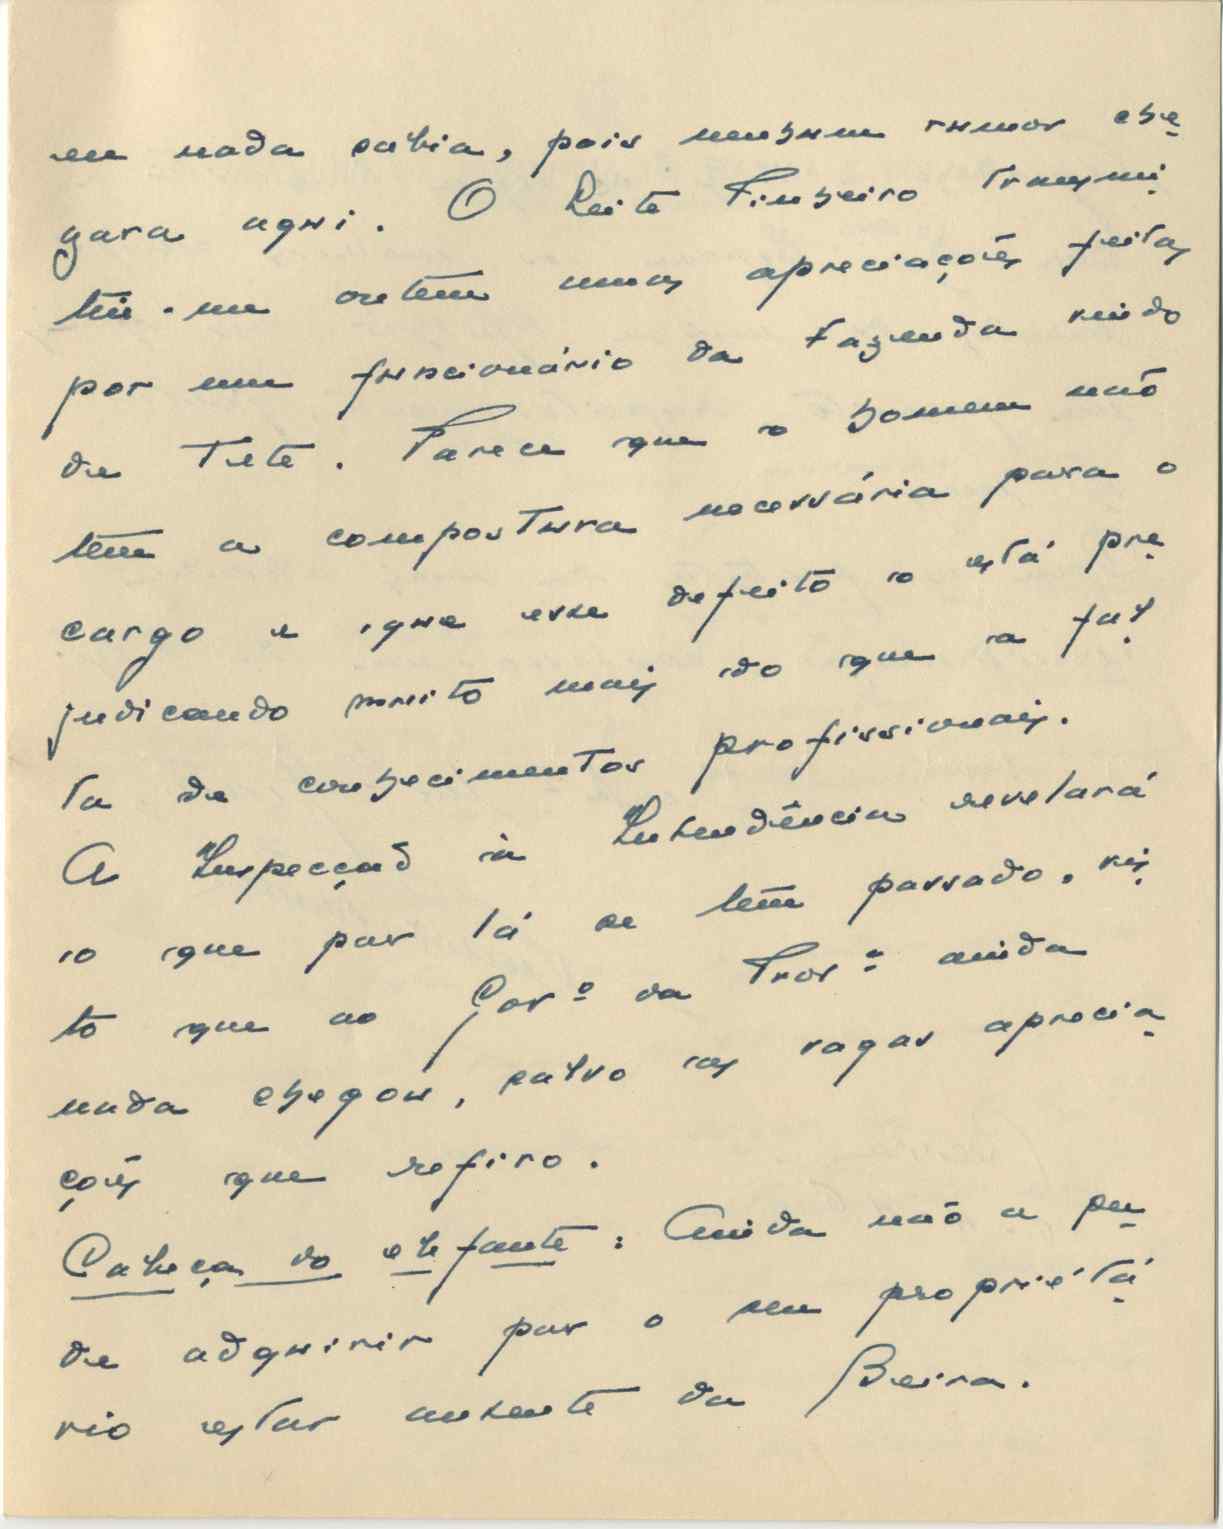 eu nada sabia, pois nenhum rumor che
gara aqui. O Leite Pinheiro transmi
tiu-me ontem umas apreciações feitas
por um funcionário da Fazenda vindo
de Tete. Parece que o homem não
tem a compostura necessária para o
cargo e que esse defeito o está pre
judicando muito mais do que a fal
ta de conhecimentos profissionais.
A Inspecção à Intendência revelará
o que por lá se tem passado, vis
to que ao Gov.º da Prov.ª ainda
nada chegou, salvo as vagas aprecia
ções que refiro.
Cabeça do elefante: Ainda não a pu
de adquirir por o seu proprietá
rio estar ausente da Beira.